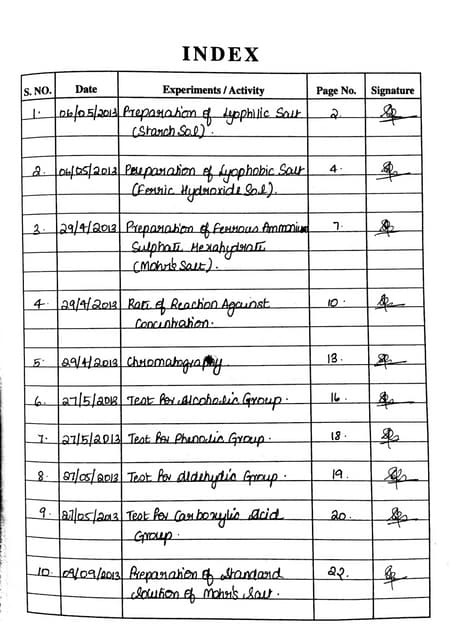 INDEX
S. NO. Date Experiments / Activity Page No. Signature
1. 06/05/2013 Preparation of Lyophilic Salt 2.
(Starch Sol).
2. 06/05/2013 Preparation of Lyophobic Salt 4.
(Ferric Hydroxide Sol).
3. 29/4/2013 Preparation of Ferrous Ammonium 7.
Sulphate Hexahydrate
(Mohr's Salt).
4. 29/4/2013 Rate of Reaction Against 10.
Concentration.
5. 29/4/2013 Chromatography 13.
6. 27/5/2013 Test For Alcoholic Group. 16.
7. 27/5/2013 Test For Phenolic Group. 18.
8. 27/05/2013 Test For Aldehydic Group. 19.
9. 27/05/2013 Test For Carboxylic Acid 20.
Group.
10. 09/09/2013 Preparation of Standard 22.
Solution of Mohr's Salt.